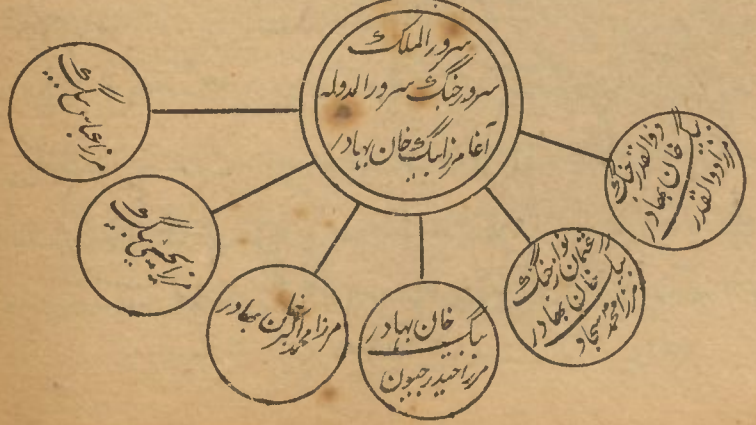 سرور الملک
سرور جنگ سرور الدولہ
آغا مرزا بیگ خان بہادر
ذوالقدر جنگ
بیگ خان بہادر
مرزا ذوالقدر
عثمان نواز جنگ
بیگ خان بہادر
مرزا محمد سجاد
خان بہادر
بیگ
مرزا حیدر جیون
مرزا محمد اکبر خان بہادر
مرزا بیگ
مرزا عباس بیگ